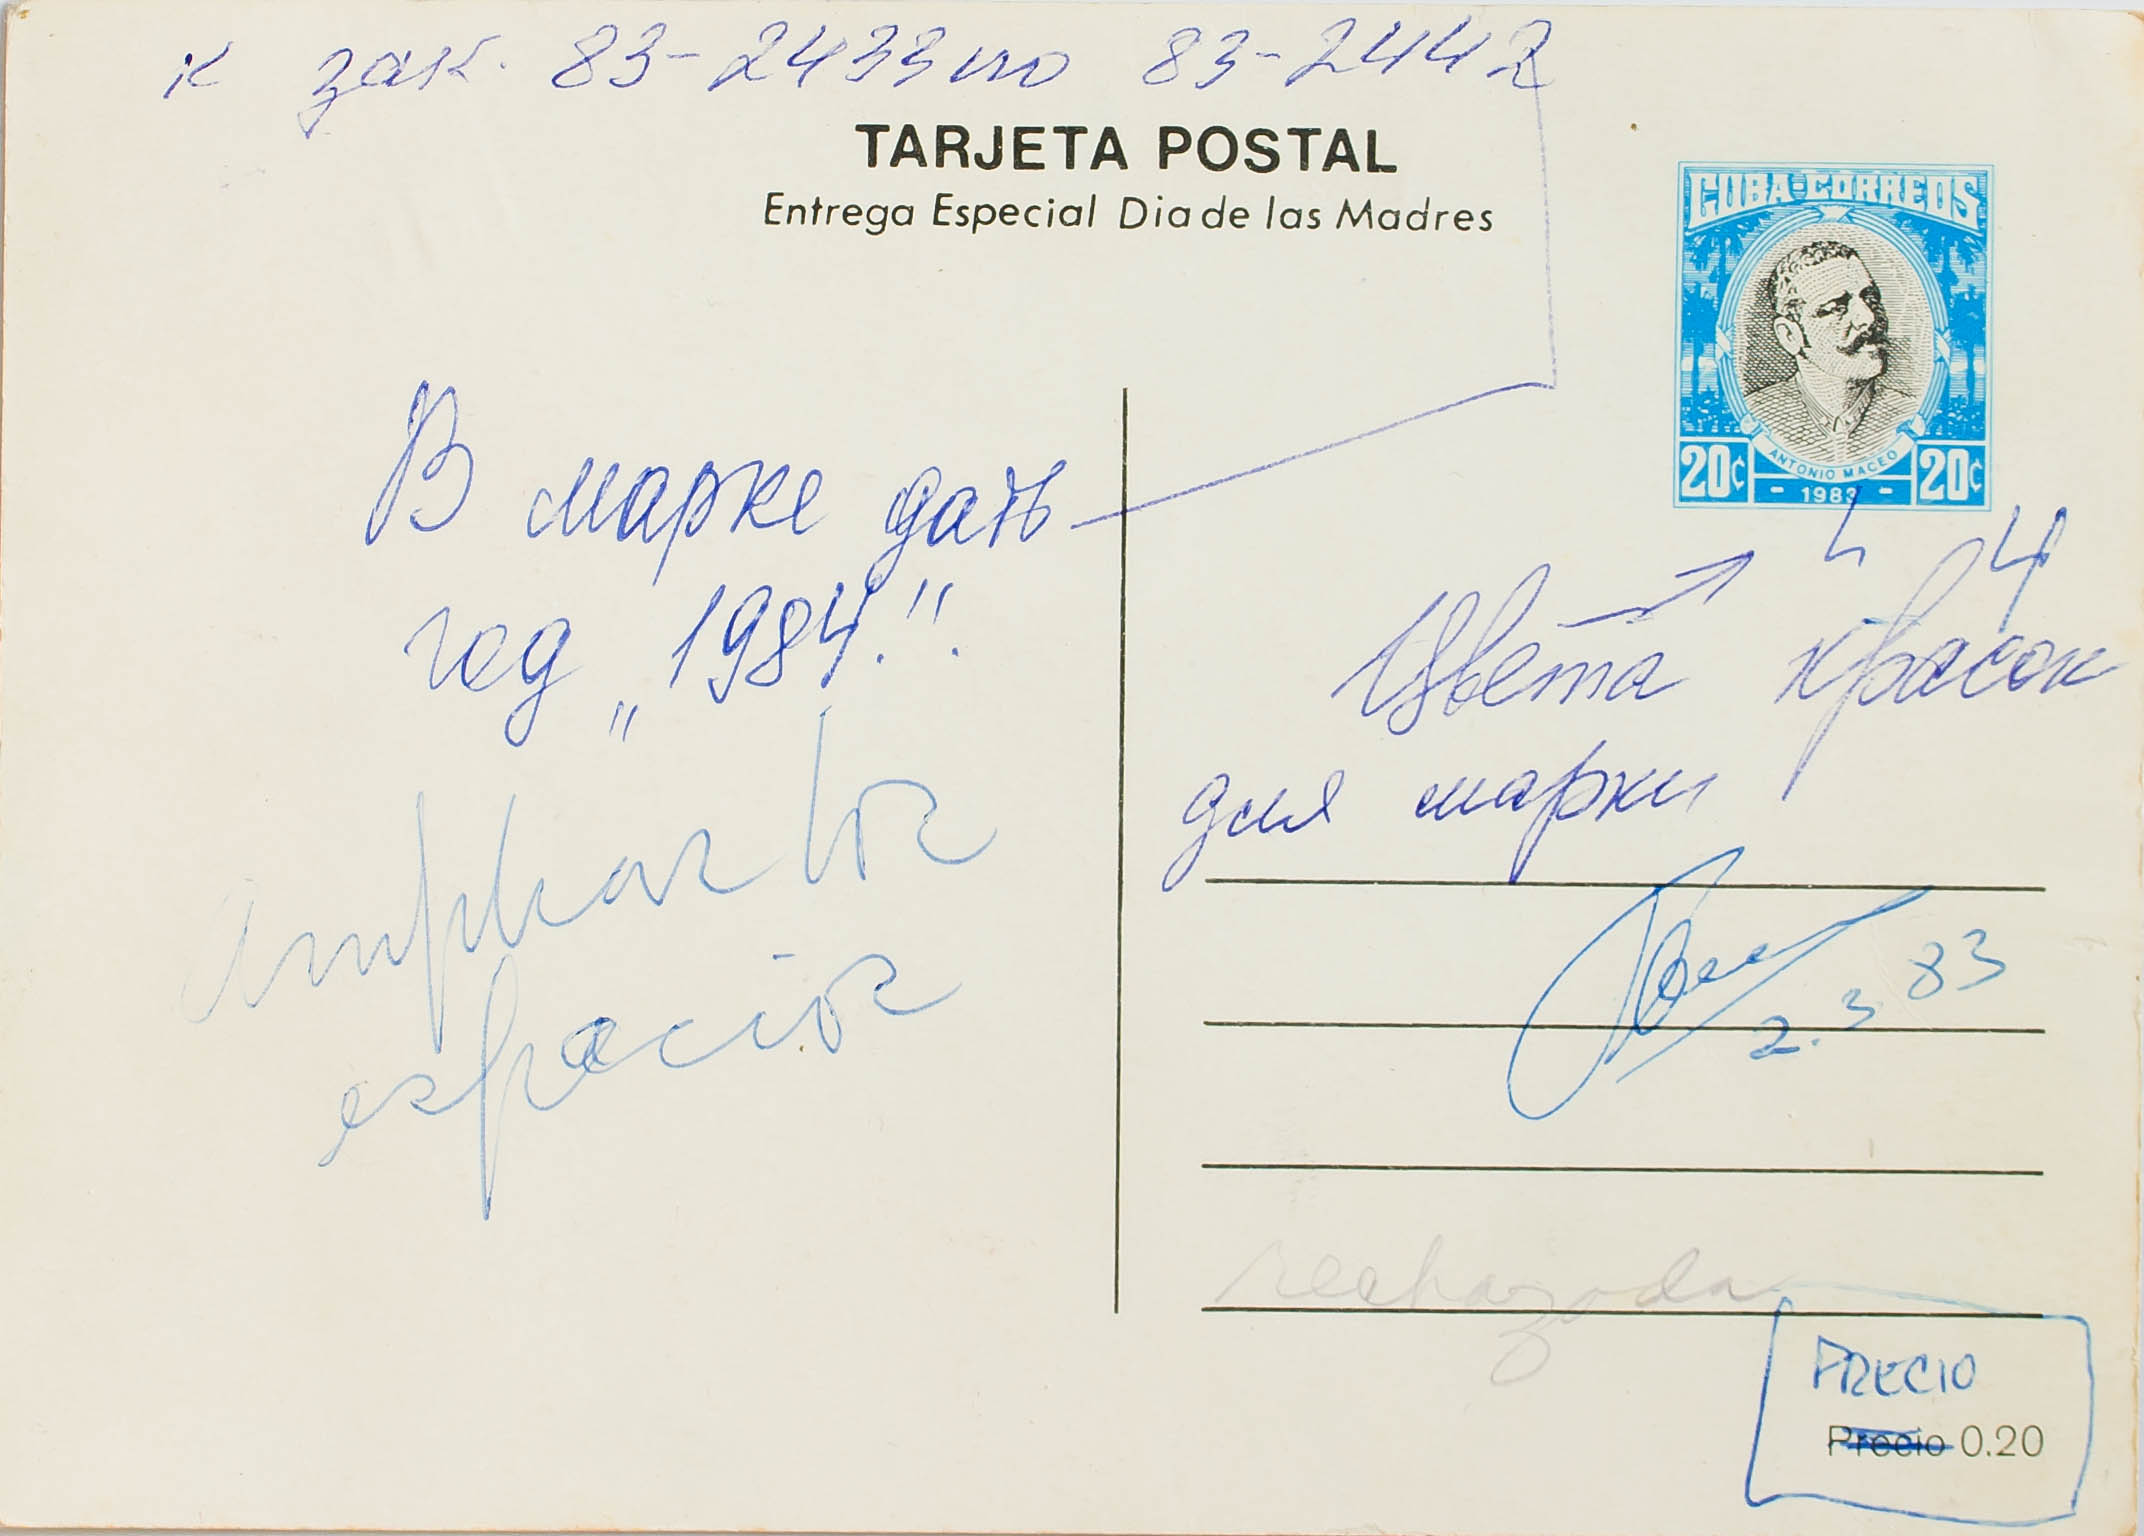 к зак. 83-2433 по 83-2442
TARJETA POSTAL
Entrega Especial Dia de las Madres
CUBA-CORREOS
ANTONIO MACEO
20¢ - 1983 - 20¢
4 4
В марке дать
год „1984."
Цвета красок
для марки
ampliar los
espacios
2.3.83
rechazada
PRECIO
Precio 0.20